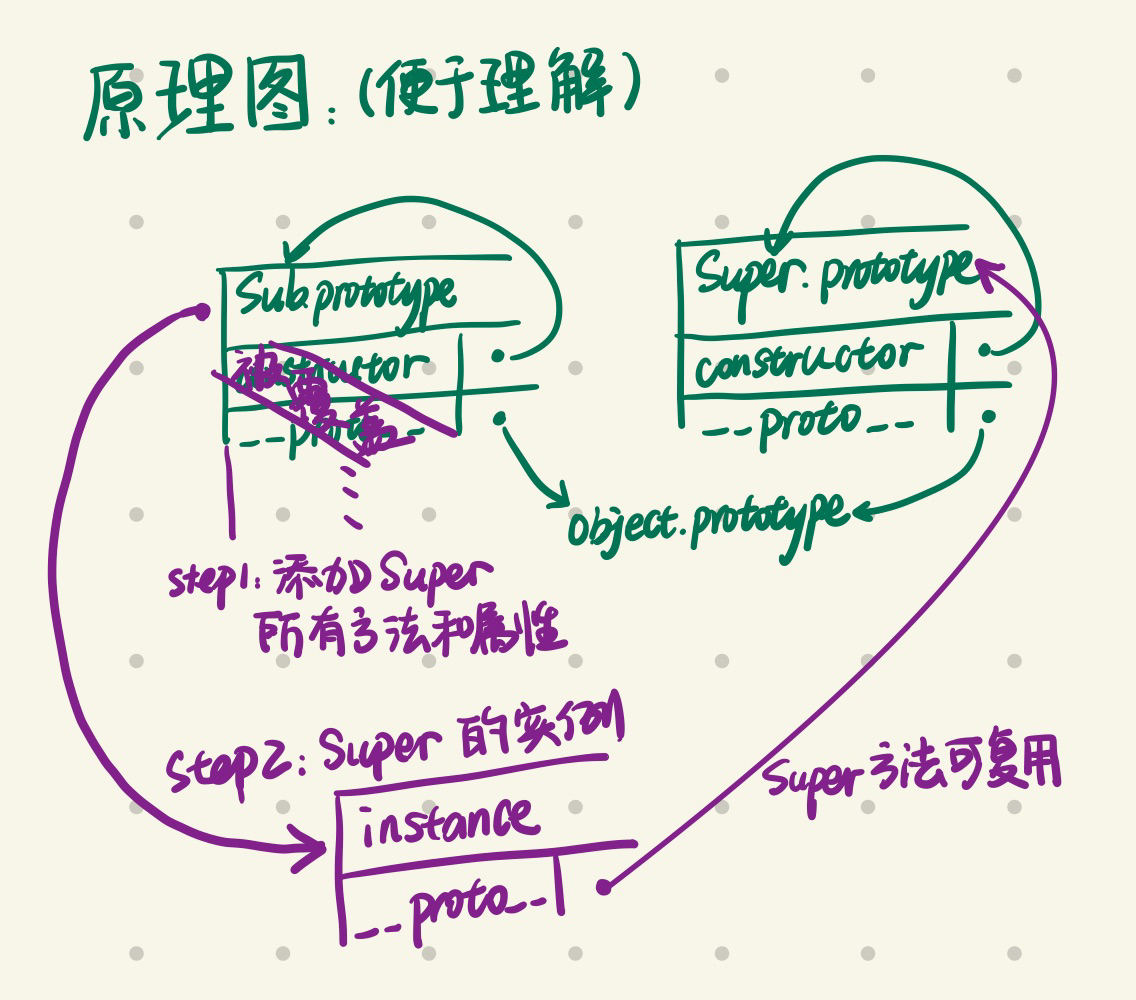 原理图：(便于理解)
Sub.prototype
constructor
被覆盖
__proto__
Super.prototype
constructor
__proto__
Object.prototype
step1: 添加Super
所有方法和属性
step2: Super 的实例
instance
__proto__
Super方法可复用